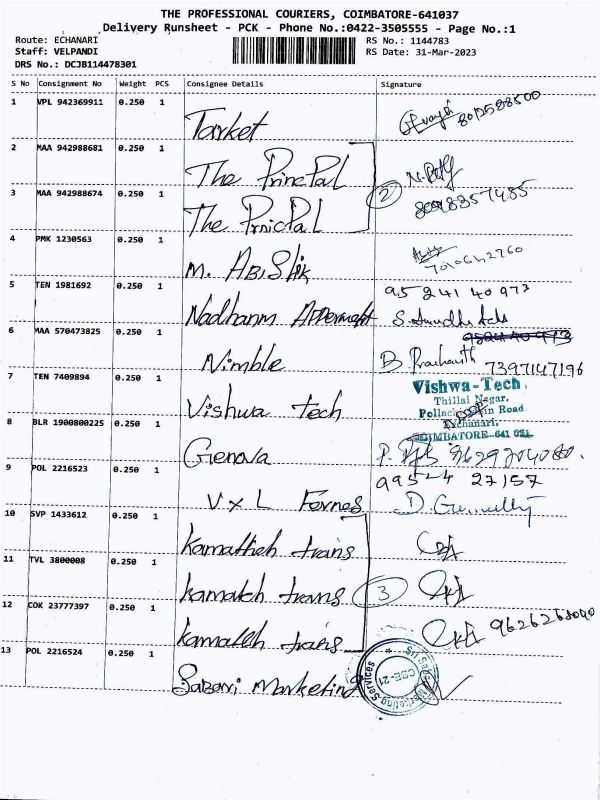 THE PROFESSIONAL COURIERS, COIMBATORE-641037
Delivery Runsheet - PCK - Phone No.:0422-3505555 - Page No.:1
Route: ECHANARI RS No.: 1144783
Staff: VELPANDI RS Date: 31-Mar-2023
DRS No.: DCJB114478301
S No Consignment No Weight PCS Consignee Details Signature
1 VPL 942369911 0.250 1
Tarket 8012588500
2 MAA 942988681 0.250 1
The Principal
3 MAA 942988674 0.250 1 2
The Prnicpal 8098357485
4 PMK 1230563 0.250 1
M. Abishik 7010642760
5 TEN 1981692 0.250 1 95 241 40 973
Nadhanm S.
6 MAA 570473825 0.250 1
Nimble B. Prashanth 7397147196
7 TEN 7409894 0.250 1 Vishwa-Tech
Thillai Nagar,
Vishwa tech Road
8 BLR 1900800225 0.250 1 Echanari,
COIMBATORE-641 021.
Genova P. 9629204080.
9 POL 2216523 0.250 1 99524 27157
V x L Fornes D.
10 SVP 1433612 0.250 1
kamatheh trans
11 TVL 3800008 0.250 1
kamatch trans 3
12 COK 23777397 0.250 1
kamatch trans 9626268040
13 POL 2216524 0.250 1
Sabari Marketing Marketing Services CBE-21